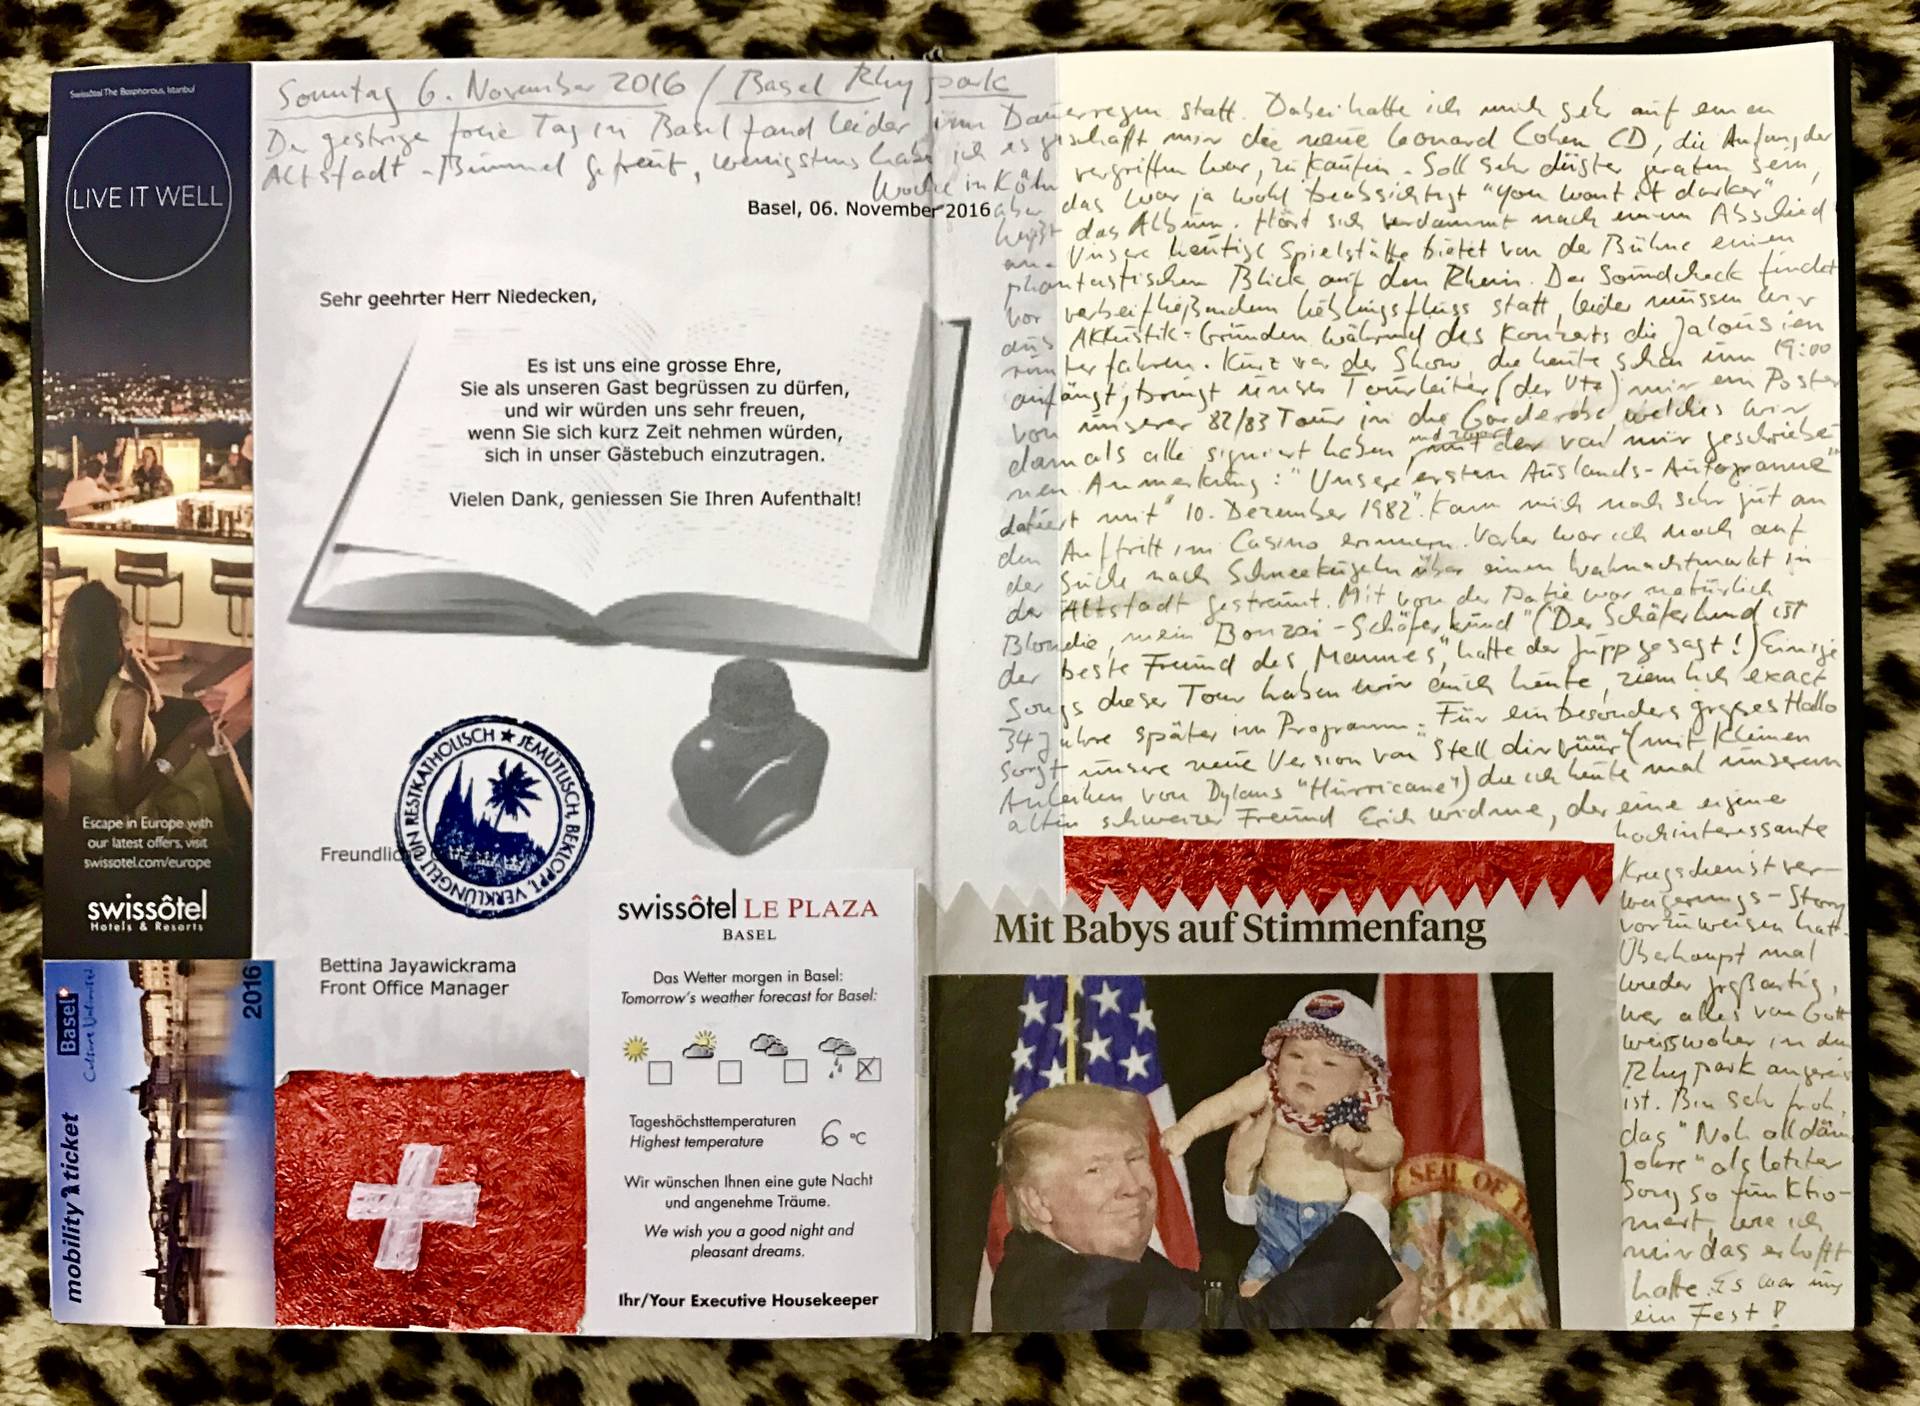 Swissôtel The Bosphorous, Istanbul
LIVE IT WELL
Escape in Europe with
our latest offers, visit
swissotel.com/europe
swissôtel
Hotels & Resorts
Basel
Culture Unlimited
2016
mobility ticket
Sonntag 6. November 2016 / Basel Rhypark
Der gestrige freie Tag in Basel fand leider im Dauerregen statt. Dabei hatte ich mich sehr auf einen
Altstadt-Bummel gefreut, wenigstens habe ich es geschafft mir die neue Leonard Cohen CD, die Anfang der
Woche in Köln vergriffen war, zu kaufen. Soll sehr düster geraten sein,
aber das war ja wohl beabsichtigt "You want it darker"
heisst das Album. Hört sich verdammt nach einem Abschied
an. Unsere heutige Spielstätte bietet von der Bühne einen
phantastischen Blick auf den Rhein. Der Soundcheck findet
vor vorbeifließendem Lieblingsfluss statt, leider müssen wir
aus Akkustik-Gründen während des Konzerts die Jalousien
runterfahren. Kurz vor der Show, die heute schon um 19:00
anfängt, bringt unser Tourleiter (der Ute) mir ein Poster
von unserer 82/83 Tour in die Garderobe, welches wir
damals alle signiert haben und zwar mit der von mir geschriebe-
nen Anmerkung: "Unsere ersten Auslands-Autogramme"
datiert mit "10. Dezember 1982". Kann mich noch sehr gut an
den Auftritt im Casino erinnern. Vorher war ich noch auf
der Suche nach Schneekugeln über einen Weihnachtsmarkt in
der Altstadt gestreunt. Mit von der Partie war natürlich
Blondie, mein "Bonzai-Schäferhund" ("Der Schäferhund ist
der beste Freund des Mannes", hatte der Jupp gesagt!) Einige
Songs dieser Tour haben wir auch heute, ziemlich exact
34 Jahre später im Programm. Für ein besonders grosses Hallo
sorgt unsere neue Version von "Stell dir vüür" (mit kleinen
Anleihen von Dylans "Hurricane") die ich heute mal unserem
alten schweizer Freund Erich widme, der eine eigene
hochinteressante
Kriegsdienstver-
weigerungs-Story
vorzuweisen hat.
Überhaupt mal
wieder großartig,
wer alles von Gott
weiss woher in den
Rhypark angereist
ist. Bin sehr froh,
das "Noh all dänn
Johre" als letzter
Song so funktio-
niert, wie ich
mir das erhofft
hatte. Es war uns
ein Fest!
Basel, 06. November 2016
Sehr geehrter Herr Niedecken,
Es ist uns eine grosse Ehre,
Sie als unseren Gast begrüssen zu dürfen,
und wir würden uns sehr freuen,
wenn Sie sich kurz Zeit nehmen würden,
sich in unser Gästebuch einzutragen.
Vielen Dank, geniessen Sie Ihren Aufenthalt!
Freundlich
JEMÜTLISCH, BEKLOPPT, VERKLÜNGELT UN RESTKATHOLISCH
Bettina Jayawickrama
Front Office Manager
swissôtel LE PLAZA
BASEL
Das Wetter morgen in Basel:
Tomorrow's weather forecast for Basel:
Tageshöchsttemperaturen
Highest temperature 6 °C
Wir wünschen Ihnen eine gute Nacht
und angenehme Träume.
We wish you a good night and
pleasant dreams.
Ihr/Your Executive Housekeeper
Mit Babys auf Stimmenfang
SEAL OF T